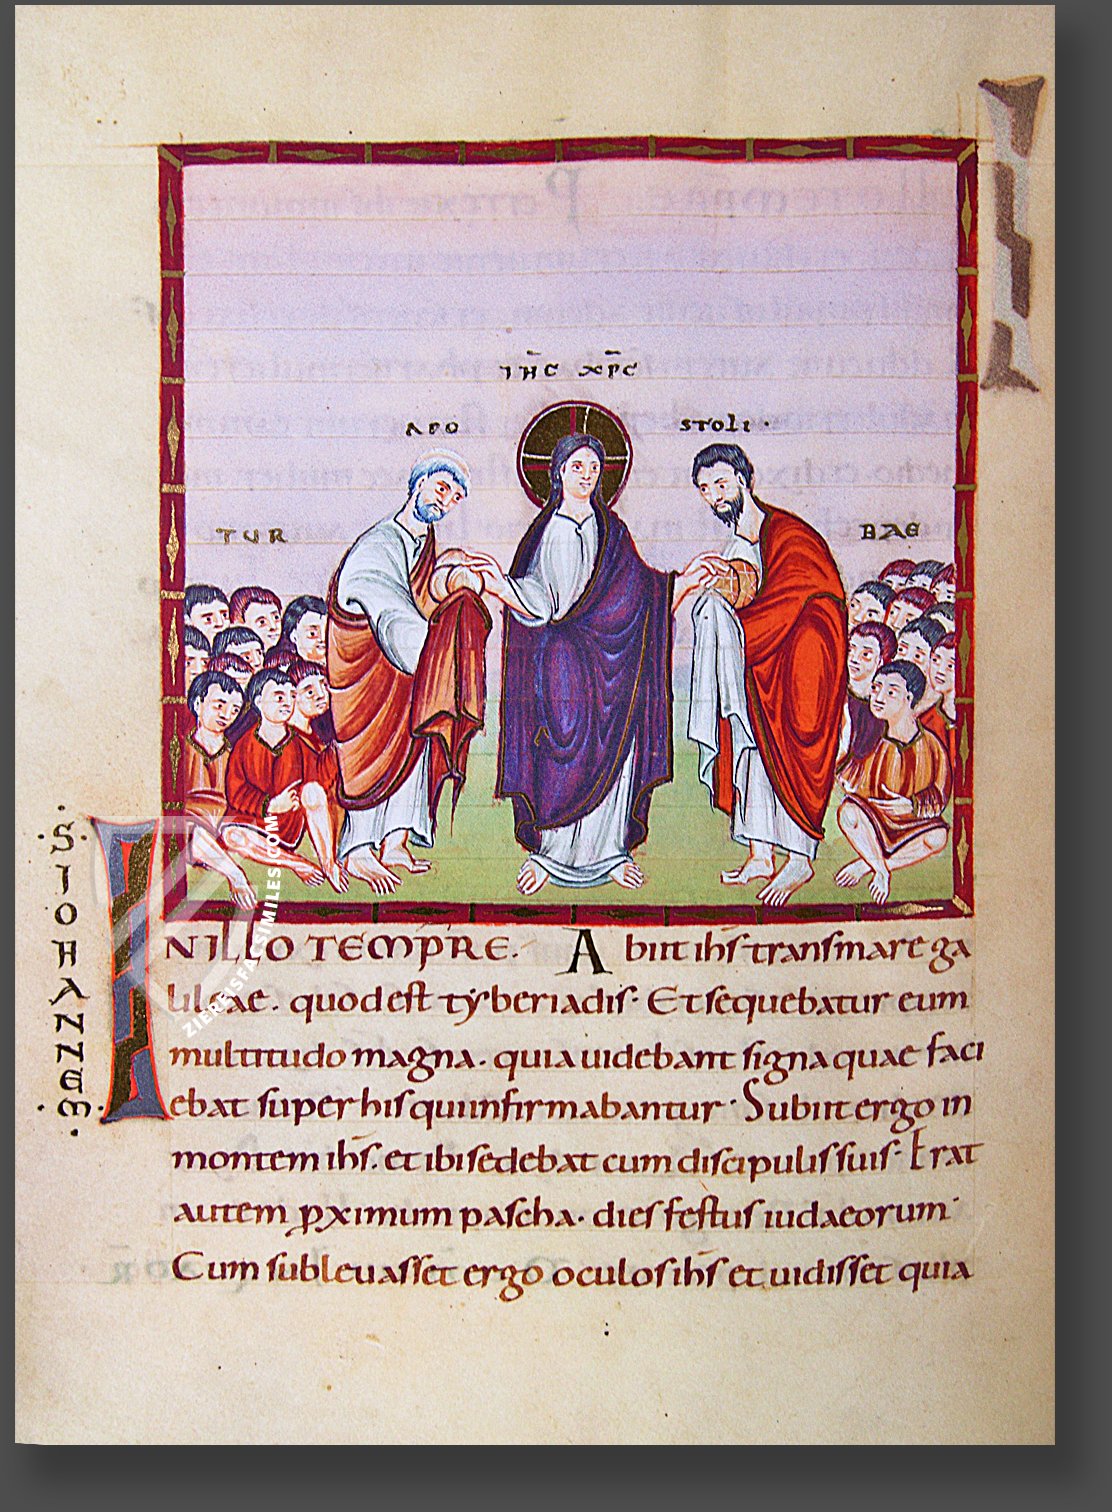 ıħc xpc
APO STOLI ·
TUR BAE
· S · IOHANNEM ·
IN ILLO TEMPRE. Abiit ihs trans mare ga
lileae. quod est tyberiadis· Et sequebatur eum
multitudo magna. quia uidebant signa quae faci
ebat super his qui infirmabantur· Subiit ergo in
montem ihs. et ibi sedebat cum discipulis suis· Erat
autem pximum pascha. dies festus iudaeorum·
Cum subleuasset ergo oculos ihs et uidisset quia
ZIEREISFACSIMILES.COM